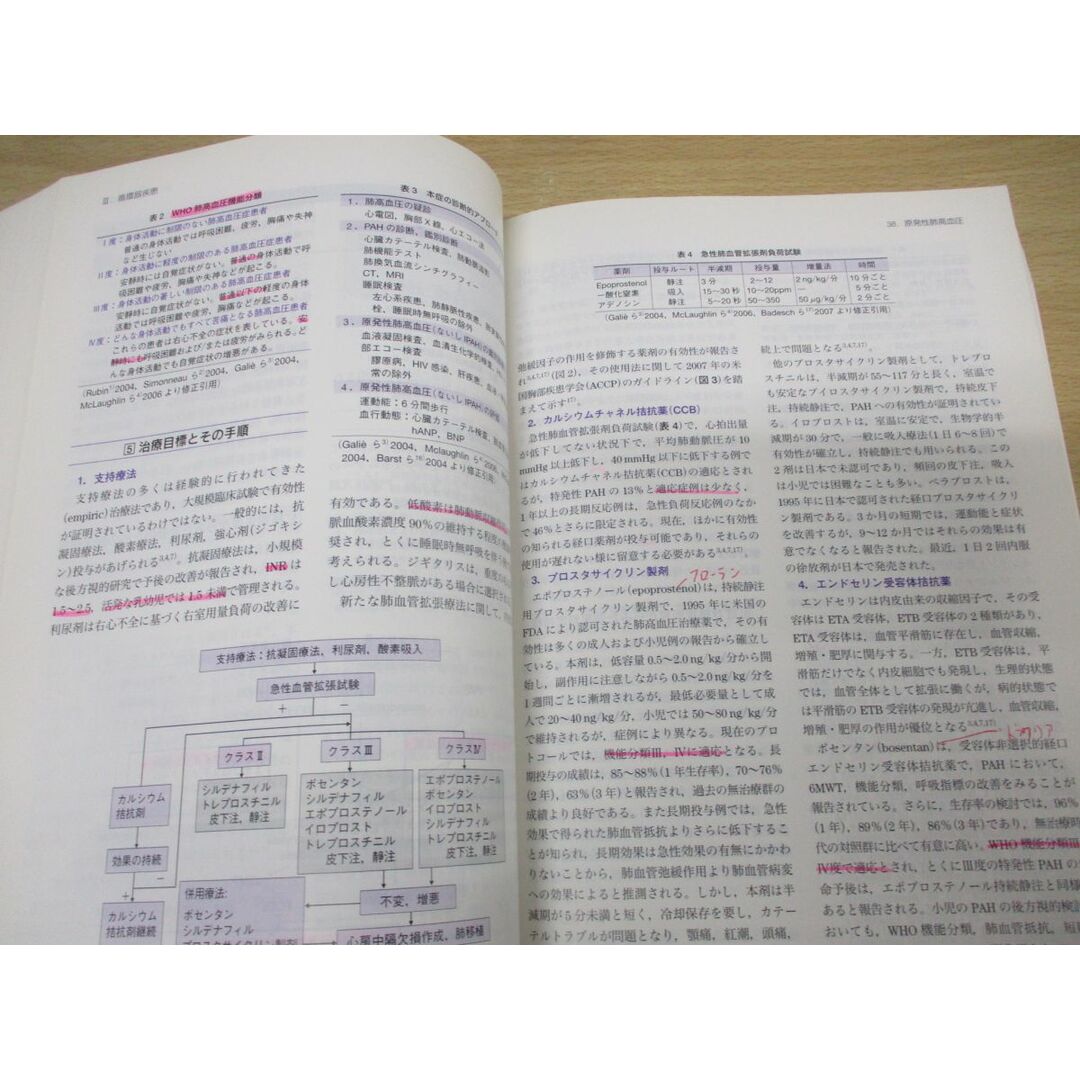 Ⅲ 循環器疾患
表2 WHO 肺高血圧機能分類
Ⅰ度：身体活動に制限のない肺高血圧症患者
普通の身体活動では呼吸困難，疲労，胸痛や失神
など生じない
Ⅱ度：身体活動に軽度の制限のある肺高血圧症患者
安静時には自覚症状がない。普通の身体活動で呼
吸困難や疲労，胸痛や失神などが起こる。
Ⅲ度：身体活動の著しい制限のある肺高血圧症患者
安静時に自覚症状がない。普通以下の軽度の身体
活動では呼吸困難や疲労，胸痛などが起こる。
Ⅳ度：どんな身体活動でもすべて苦痛となる肺高血圧患者
これらの患者は右心不全の症状を表している。安
静時にも呼吸困難および/または疲労がみられる。ど
んな身体活動でも自覚症状の増悪がある。
(Rubin 2004, Simonneau ら 2004, Galiè ら 2004,
McLaughlin ら 2006 より修正引用)
5 治療目標とその手順
1. 支持療法
支持療法の多くは経験的に行われてきた
(empiric)治療であり，大規模臨床試験で有効性
が証明されているわけではない。一般的には，抗
凝固療法，酸素療法，利尿剤，強心剤(ジゴキシ
ン)投与があげられる3,4,7)．抗凝固療法は，小規模
な後方視的研究で予後の改善が報告され，INR は
1.5～2.5，活発な乳幼児では 1.5 未満で管理される。
利尿剤は右心不全に基づく右室用量負荷の改善に
表3 本症の診断的アプローチ
1．肺高血圧の疑診
心電図，胸部X線，心エコー法
2．PAHの診断，鑑別診断
心臓カテーテル検査，肺動脈造影
肺機能テスト
肺換気血流シンチグラフィー
CT，MRI
睡眠検査
左心系疾患，肺静脈性疾患，肺実
栓，睡眠時無呼吸の除外
3．原発性肺高血圧(ないしIPAH)の
血液凝固検査，血清生化学的検査，
部エコー検査
膠原病，HIV 感染，肝疾患，血
常の除外
4．原発性肺高血圧(ないしIPAH)の評価
運動能：6分間歩行
血行動態：心臓カテーテル検査，
hANP，BNP
(Galiè ら3) 2004, Mclaughlin ら
2004, Barst ら 2004 より修正引用)
有効である。低酸素は肺動脈
脈血酸素濃度 90%の維持する程度の
奨され，とくに睡眠時無呼吸を伴う
考えられる。ジギタリスは，重度の
し心房性不整脈がある場合に選択され
新たな肺血管拡張療法に関して，
支持療法：抗凝固療法、利尿剤、酸素吸入
急性血管拡張試験
+ −
クラスⅡ クラスⅢ クラスⅣ
カルシウム
拮抗剤
シルデナフィル
トレプロスチニル
皮下注、静注
ボセンタン
シルデナフィル
エポプロステノール
イロプロスト
トレプロスチニル
皮下注、静注
エポプロステノール
ボセンタン
イロプロスト
シルデナフィル
トレプロスチニル
皮下注、静注
効果の持続
+ −
カルシウム
拮抗剤継続
併用療法：
ボセンタン
シルデナフィル
プロスタサイクリン製剤
不変、増悪
心房中隔欠損作成、肺移植
38．原発性肺高血圧
表4 急性肺血管拡張剤負荷試験
薬剤 投与ルート 半減期 投与量 増量法 時間
Epoprostenol 静注 3分 2～12 2 ng/kg/分 10分ごと
一酸化窒素 吸入 15～30秒 10～20ppm — 5分ごと
アデノシン 静注 5～20秒 50～350 50μg/kg/分 2分ごと
(Galiè ら3) 2004, McLaughlin ら4) 2006, Badesch ら17) 2007 より修正引用)
弛緩因子の作用を修飾する薬剤の有効性が報告さ
れ3,4,7,17)(図2)，その使用法に関して 2007 年の米
国胸部疾患学会(ACCP)のガイドライン(図3)を踏
まえて示す17)．
2. カルシウムチャネル拮抗薬(CCB)
急性肺血管拡張剤負荷試験(表4)で，心拍出量
が低下してない状況下で，平均肺動脈圧が 10
mmHg 以上低下し，40 mmHg 以下に低下する例で
はカルシウムチャネル拮抗薬(CCB)の適応とされ
るが，特発性 PAH の 13%と適応症例は少なく，
1年以上の長期反応例は，急性負荷反応例のなか
で 46%とさらに限定される。現在，ほかに有効性
の知られる経口薬剤が投与可能であり，それらの
使用が遅れない様に留意する必要がある3,4,7,17)．
3. プロスタサイクリン製剤
フローラン
エポプロステノール(epoprostenol)は，持続静注
用プロスタサイクリン製剤で，1995 年に米国の
FDA により認可された肺高血圧治療薬で，その有
効性は多くの成人および小児例の報告から確立し
ている。本剤は，低容量 0.5～2.0 ng/kg/分から開
始し，副作用に注意しながら 0.5～2.0 ng/kg/分を
1週間ごとに漸増されるが，最低必要量として成
人で 20～40 ng/kg/分，小児では 50～80 ng/kg/分
で維持されるが，症例により異なる。現在のプロ
トコールでは，機能分類Ⅲ，Ⅳに適応となる。長
期投与の成績は，85～88%(1年生存率)，70～76%
(2年)，63%(3年)と報告され，過去の無治療群の
成績より良好である。また長期投与例では，急性
効果で得られた肺血管抵抗よりさらに低下するこ
とが知られ，長期効果は急性効果の有無にかかわ
りないことから，肺血管弛緩作用より肺血管病変
への効果によると推測される。しかし，本剤は半
減期が5分未満と短く，冷却保存を要し，カテー
テルトラブルが問題となり，顎痛，紅潮，頭痛，
続上で問題となる3,4,7,17)．
他のプロスタサイクリン製剤として，トレプロ
スチニルは，半減期が 55～117 分と長く，室温で
も安定なプイロスタサイクリン製剤で，持続皮下
注，持続静注で，PAH への有効性が証明されてい
る。イロプロストは，室温に安定で，生物学的半
減期が 30 分で，一般に吸入療法(1日6～8回)で
有効性が確立し，持続静注でも用いられる。この
2剤は日本で未認可であり，頻回の皮下注，吸入
は小児では困難なことも多い。ベラプロストは，
1995 年に日本で認可された経口プロスタサイクリ
ン製剤である。3か月の短期では，運動能と症状
を改善するが，9～12 か月ではそれらの効果は有
意でなくなると報告された。最近，1日2回内服
の徐放剤が日本で発売された。
4. エンドセリン受容体拮抗薬
エンドセリンは内皮由来の収縮因子で，その受
容体は ETA 受容体，ETB 受容体の2種類があり，
ETA 受容体は，血管平滑筋に存在し，血管収縮，
増殖・肥厚に関与する。一方，ETB 受容体は，平
滑筋だけでなく内皮細胞でも発現し，生理的状態
では，血管全体として拡張に働くが，病的状態で
は平滑筋の ETB 受容体の発現が亢進し，血管収縮，
増殖・肥厚の作用が優位となる3,4,7,17)．
トラクリア
ボセンタン(bosentan)は，受容体非選択的経口
エンドセリン受容体拮抗薬で，PAH において，
6MWT，機能分類，呼吸指標の改善をみることが
報告されている。さらに，生存率の検討では，96%
(1年)，89%(2年)，86%(3年)であり，無治療時
代の対照群に比べて有意に高い。WHO 機能分類Ⅲ
Ⅳ度で適応とされ，とくにⅢ度の特発性 PAH の
命予後は，エポプロステノール持続静注と同様
あると報告される。小児の PAH の後方視的検討
おいても，WHO 機能分類，肺血管抵抗，短